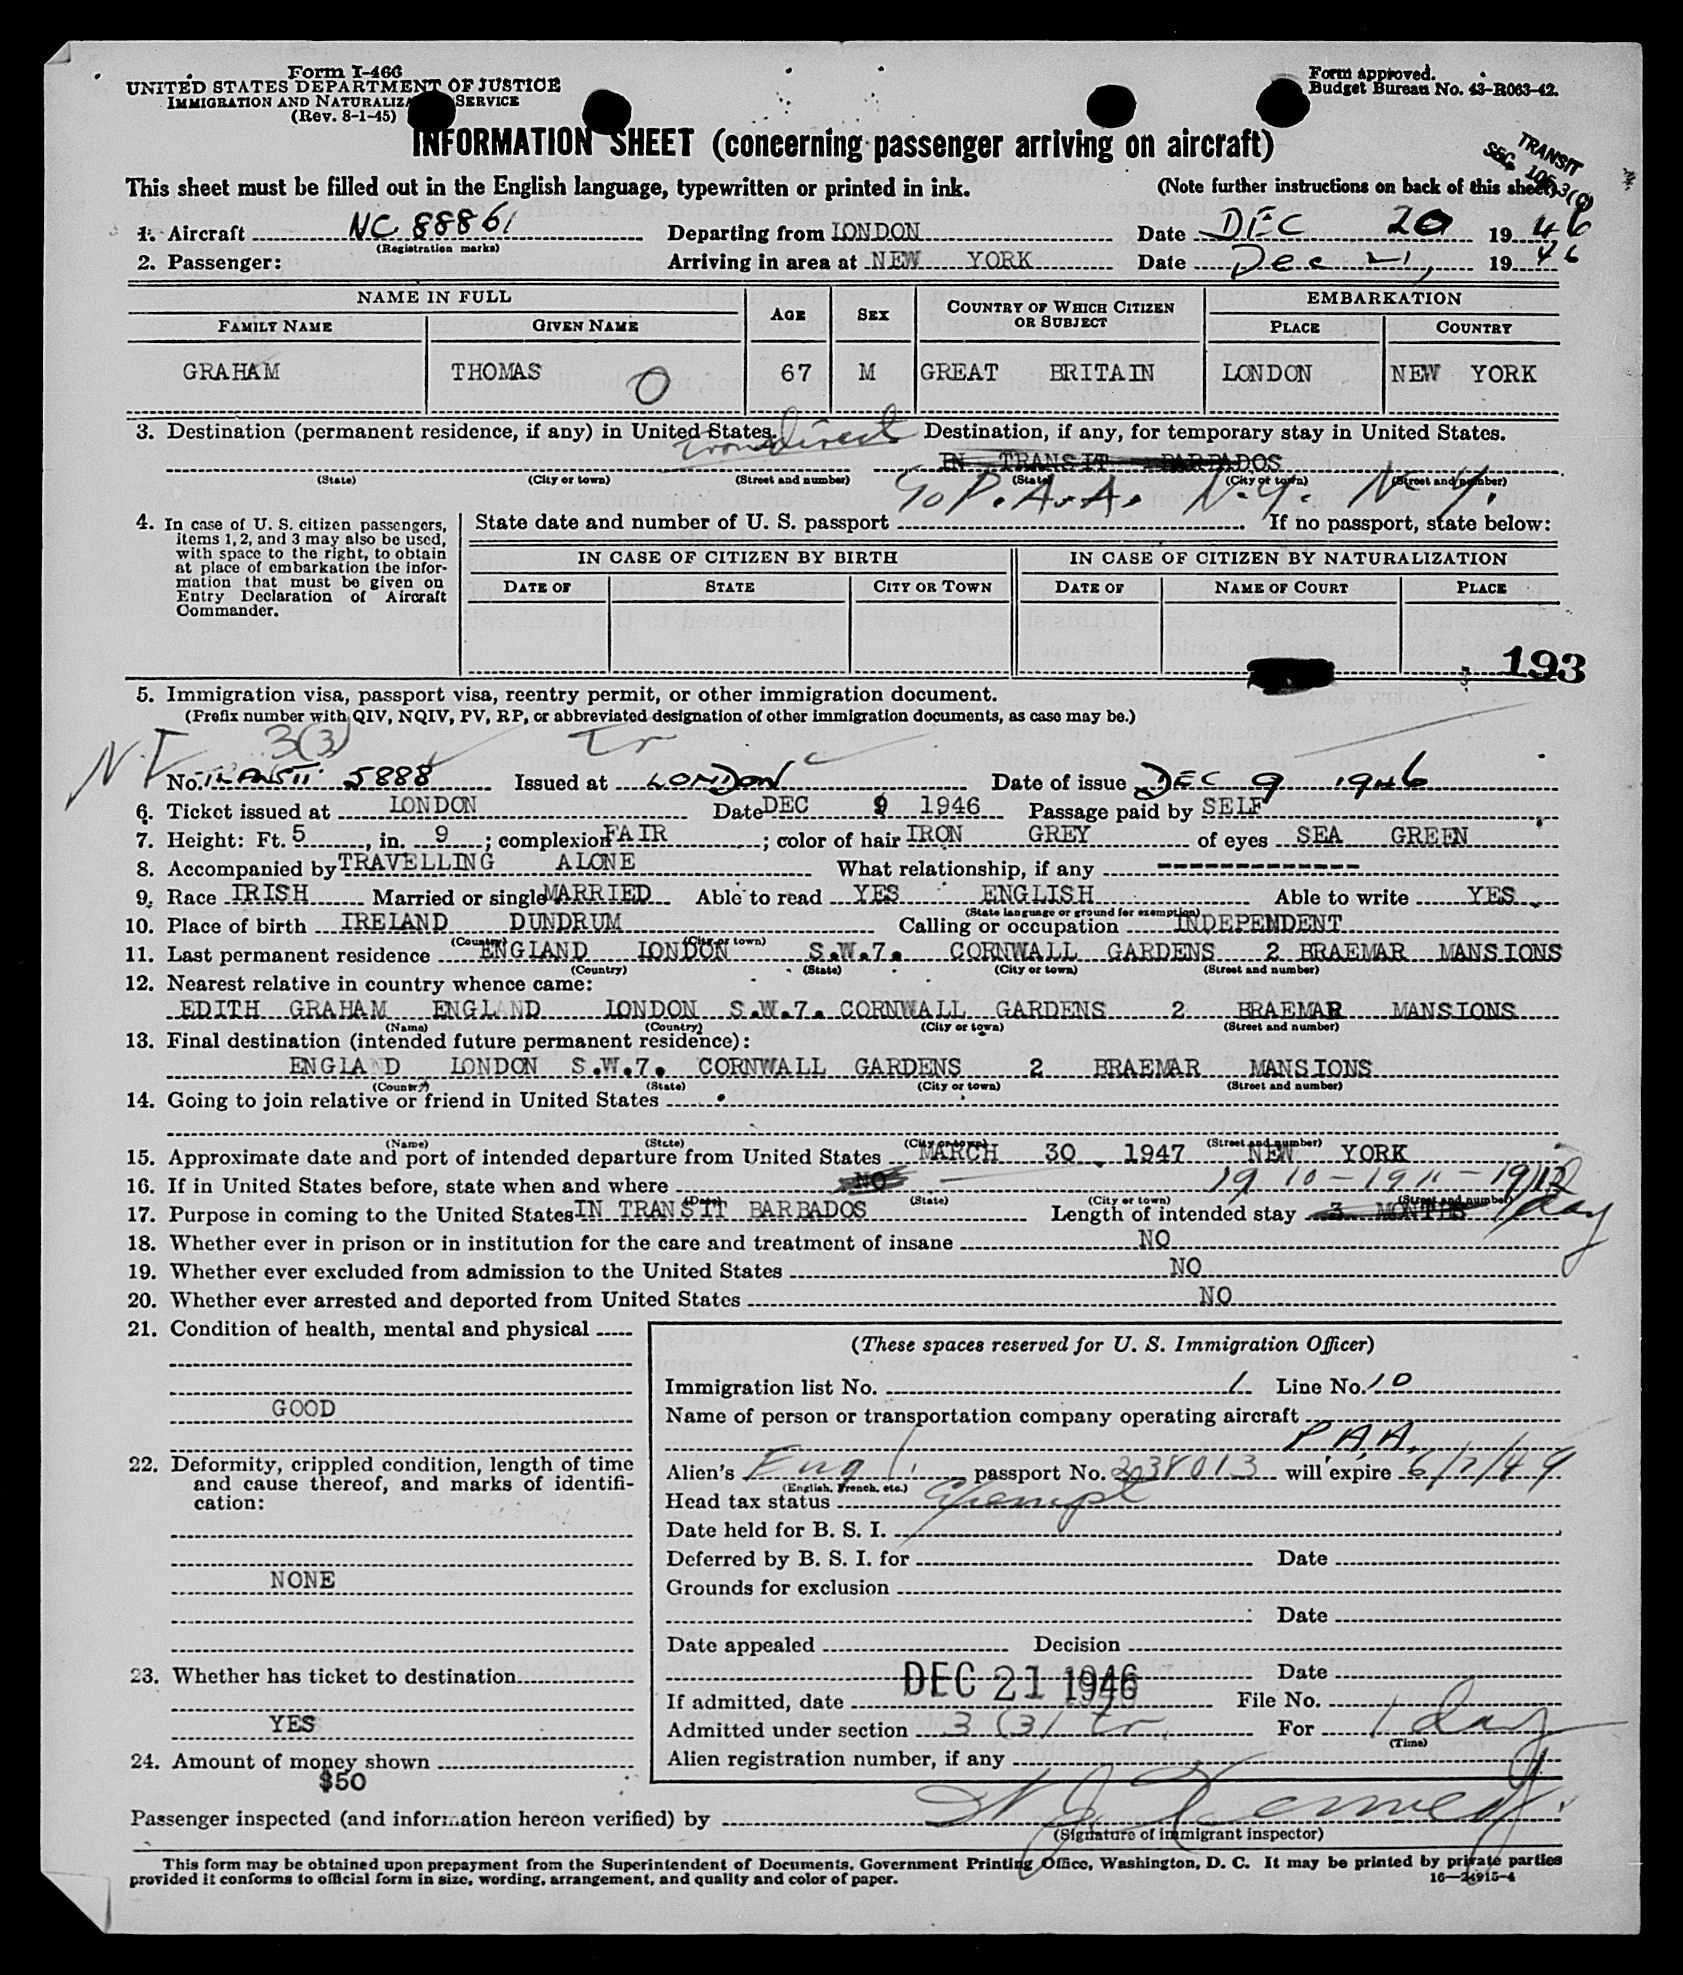 Form I-466
UNITED STATES DEPARTMENT OF JUSTICE
IMMIGRATION AND NATURALIZA SERVICE
(Rev. 8-1-45)
Form approved.
Budget Bureau No. 43-R063-42.
INFORMATION SHEET (concerning passenger arriving on aircraft)
TRANSIT
SEC. 106.3(a)
This sheet must be filled out in the English language, typewritten or printed in ink. (Note further instructions on back of this sheet)
1. Aircraft NC 88861 Departing from LONDON Date DEC 20 1946
(Registration marks)
2. Passenger: Arriving in area at NEW YORK Date Dec 21, 1946
NAME IN FULL AGE SEX COUNTRY OF WHICH CITIZEN OR SUBJECT EMBARKATION
FAMILY NAME GIVEN NAME PLACE COUNTRY
GRAHAM THOMAS O 67 M GREAT BRITAIN LONDON NEW YORK
3. Destination (permanent residence, if any) in United States. Destination, if any, for temporary stay in United States.
IN TRANSIT BARBADOS
(State) (City or town) (Street and number) (State) (City or town) (Street and number)
P.A.A. N.Y. N.Y.
4. In case of U. S. citizen passengers, items 1, 2, and 3 may also be used, with space to the right, to obtain at place of embarkation the information that must be given on Entry Declaration of Aircraft Commander.
State date and number of U. S. passport If no passport, state below:
IN CASE OF CITIZEN BY BIRTH IN CASE OF CITIZEN BY NATURALIZATION
DATE OF STATE CITY OR TOWN DATE OF NAME OF COURT PLACE
193
5. Immigration visa, passport visa, reentry permit, or other immigration document.
(Prefix number with QIV, NQIV, PV, RP, or abbreviated designation of other immigration documents, as case may be.)
3(3) Tr
No. TRANSIT 5888 Issued at LONDON Date of issue DEC 9 1946
6. Ticket issued at LONDON Date DEC 9 1946 Passage paid by SELF
7. Height: Ft. 5, in. 9; complexion FAIR; color of hair IRON GREY of eyes SEA GREEN
8. Accompanied by TRAVELLING ALONE What relationship, if any --------------
9. Race IRISH Married or single MARRIED Able to read YES ENGLISH Able to write YES
(State language or ground for exemption)
10. Place of birth IRELAND DUNDRUM Calling or occupation INDEPENDENT
(Country) (City or town)
11. Last permanent residence ENGLAND LONDON S.W.7. CORNWALL GARDENS 2 BRAEMAR MANSIONS
(Country) (State) (City or town) (Street and number)
12. Nearest relative in country whence came:
EDITH GRAHAM ENGLAND LONDON S.W.7. CORNWALL GARDENS 2 BRAEMAR MANSIONS
(Name) (Country) (City or town) (Street and number)
13. Final destination (intended future permanent residence):
ENGLAND LONDON S.W.7. CORNWALL GARDENS 2 BRAEMAR MANSIONS
(Country) (State) (City or town) (Street and number)
14. Going to join relative or friend in United States
(Name) (State) (City or town) (Street and number)
15. Approximate date and port of intended departure from United States MARCH 30 1947 NEW YORK
16. If in United States before, state when and where NO 1910 - 1911 - 1912
(Date) (State) (City or town) (Street and number)
17. Purpose in coming to the United States IN TRANSIT BARBADOS Length of intended stay 3 MONTHS 1 day
18. Whether ever in prison or in institution for the care and treatment of insane NO
19. Whether ever excluded from admission to the United States NO
20. Whether ever arrested and deported from United States NO
21. Condition of health, mental and physical
GOOD
22. Deformity, crippled condition, length of time
and cause thereof, and marks of identifi-
cation:
NONE
23. Whether has ticket to destination
YES
24. Amount of money shown
$50
(These spaces reserved for U. S. Immigration Officer)
Immigration list No. 1 Line No. 10
Name of person or transportation company operating aircraft
P.A.A.
Alien's Eng. passport No. 2038013 will expire 6/7/49
(English, French, etc.)
Head tax status Exempt
Date held for B. S. I.
Deferred by B. S. I. for Date
Grounds for exclusion
Date
Date appealed Decision
Date
If admitted, date DEC 21 1946 File No.
Admitted under section 3(3) tr. For 1 day
(Time)
Alien registration number, if any
Passenger inspected (and information hereon verified) by
(Signature of immigrant inspector)
This form may be obtained upon prepayment from the Superintendent of Documents, Government Printing Office, Washington, D. C. It may be printed by private parties
provided it conforms to official form in size, wording, arrangement, and quality and color of paper. 16—24915-4